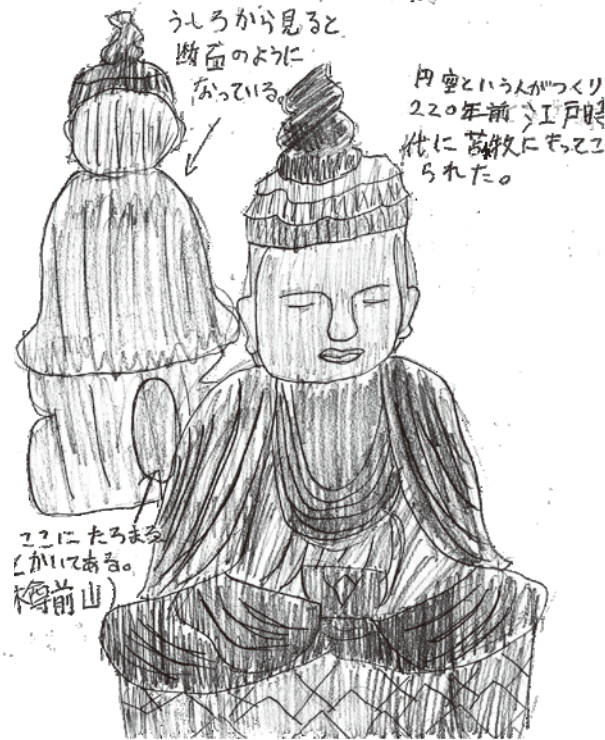 うしろから見ると
断面のように
なっている。
円空という人がつくり
220年前江戸時
代に苫牧にもってこ
られた。
ここにたろまる
とかいてある。
樽前山)